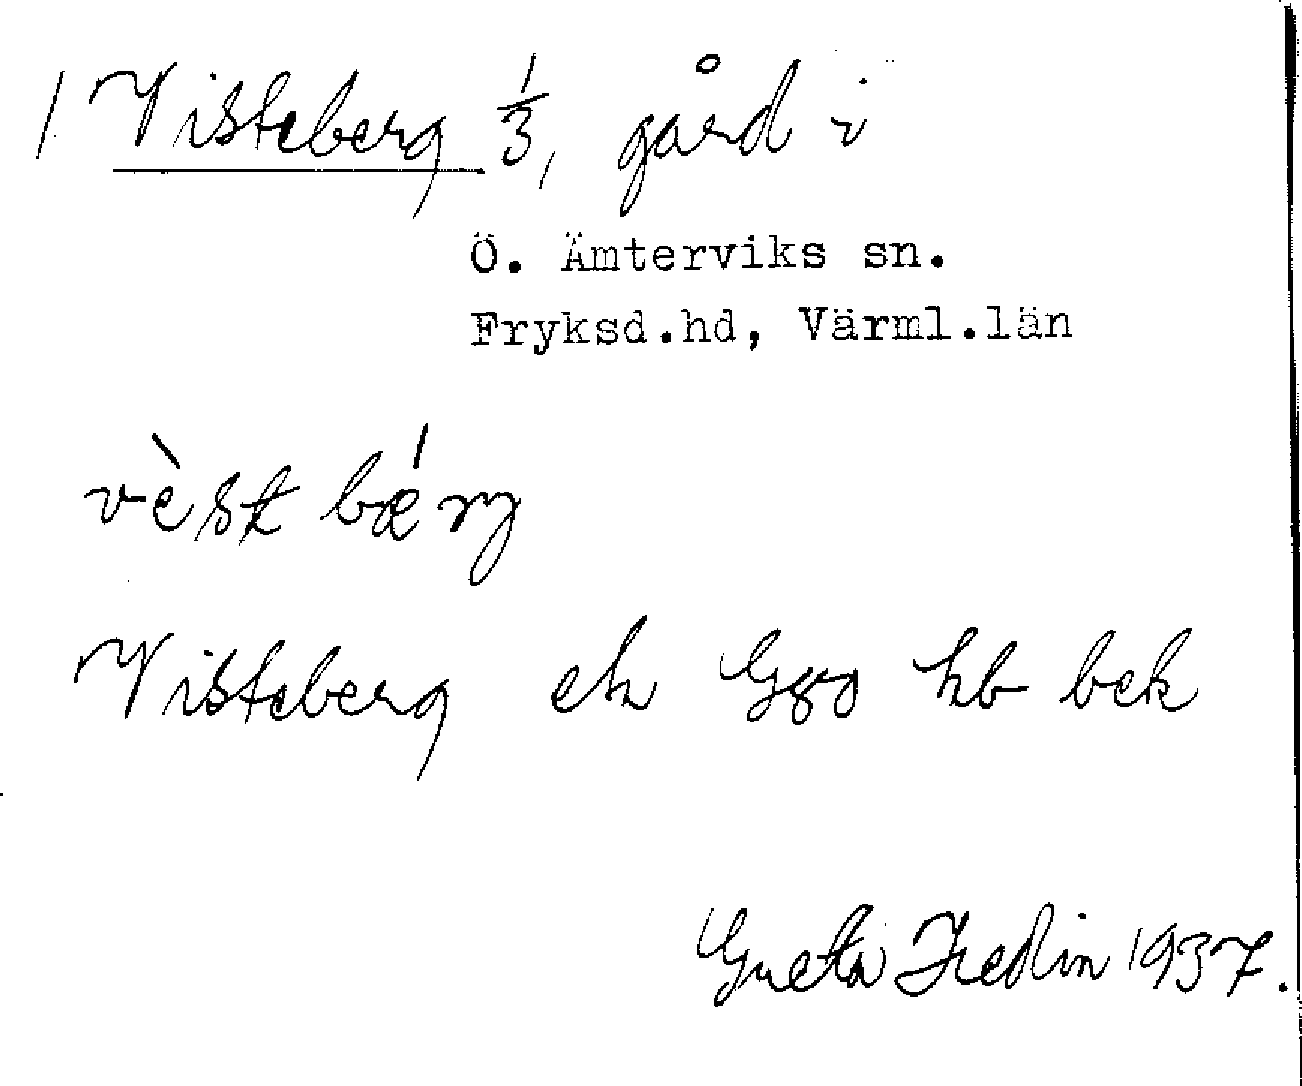 1 Visteberg 1/3, gård i
Ö. Ämterviks sn.
Fryksd.hd, Värml.län
vèst bǽrj
Visteberg ek Ggo kb bek
Greta Hedin 1937.